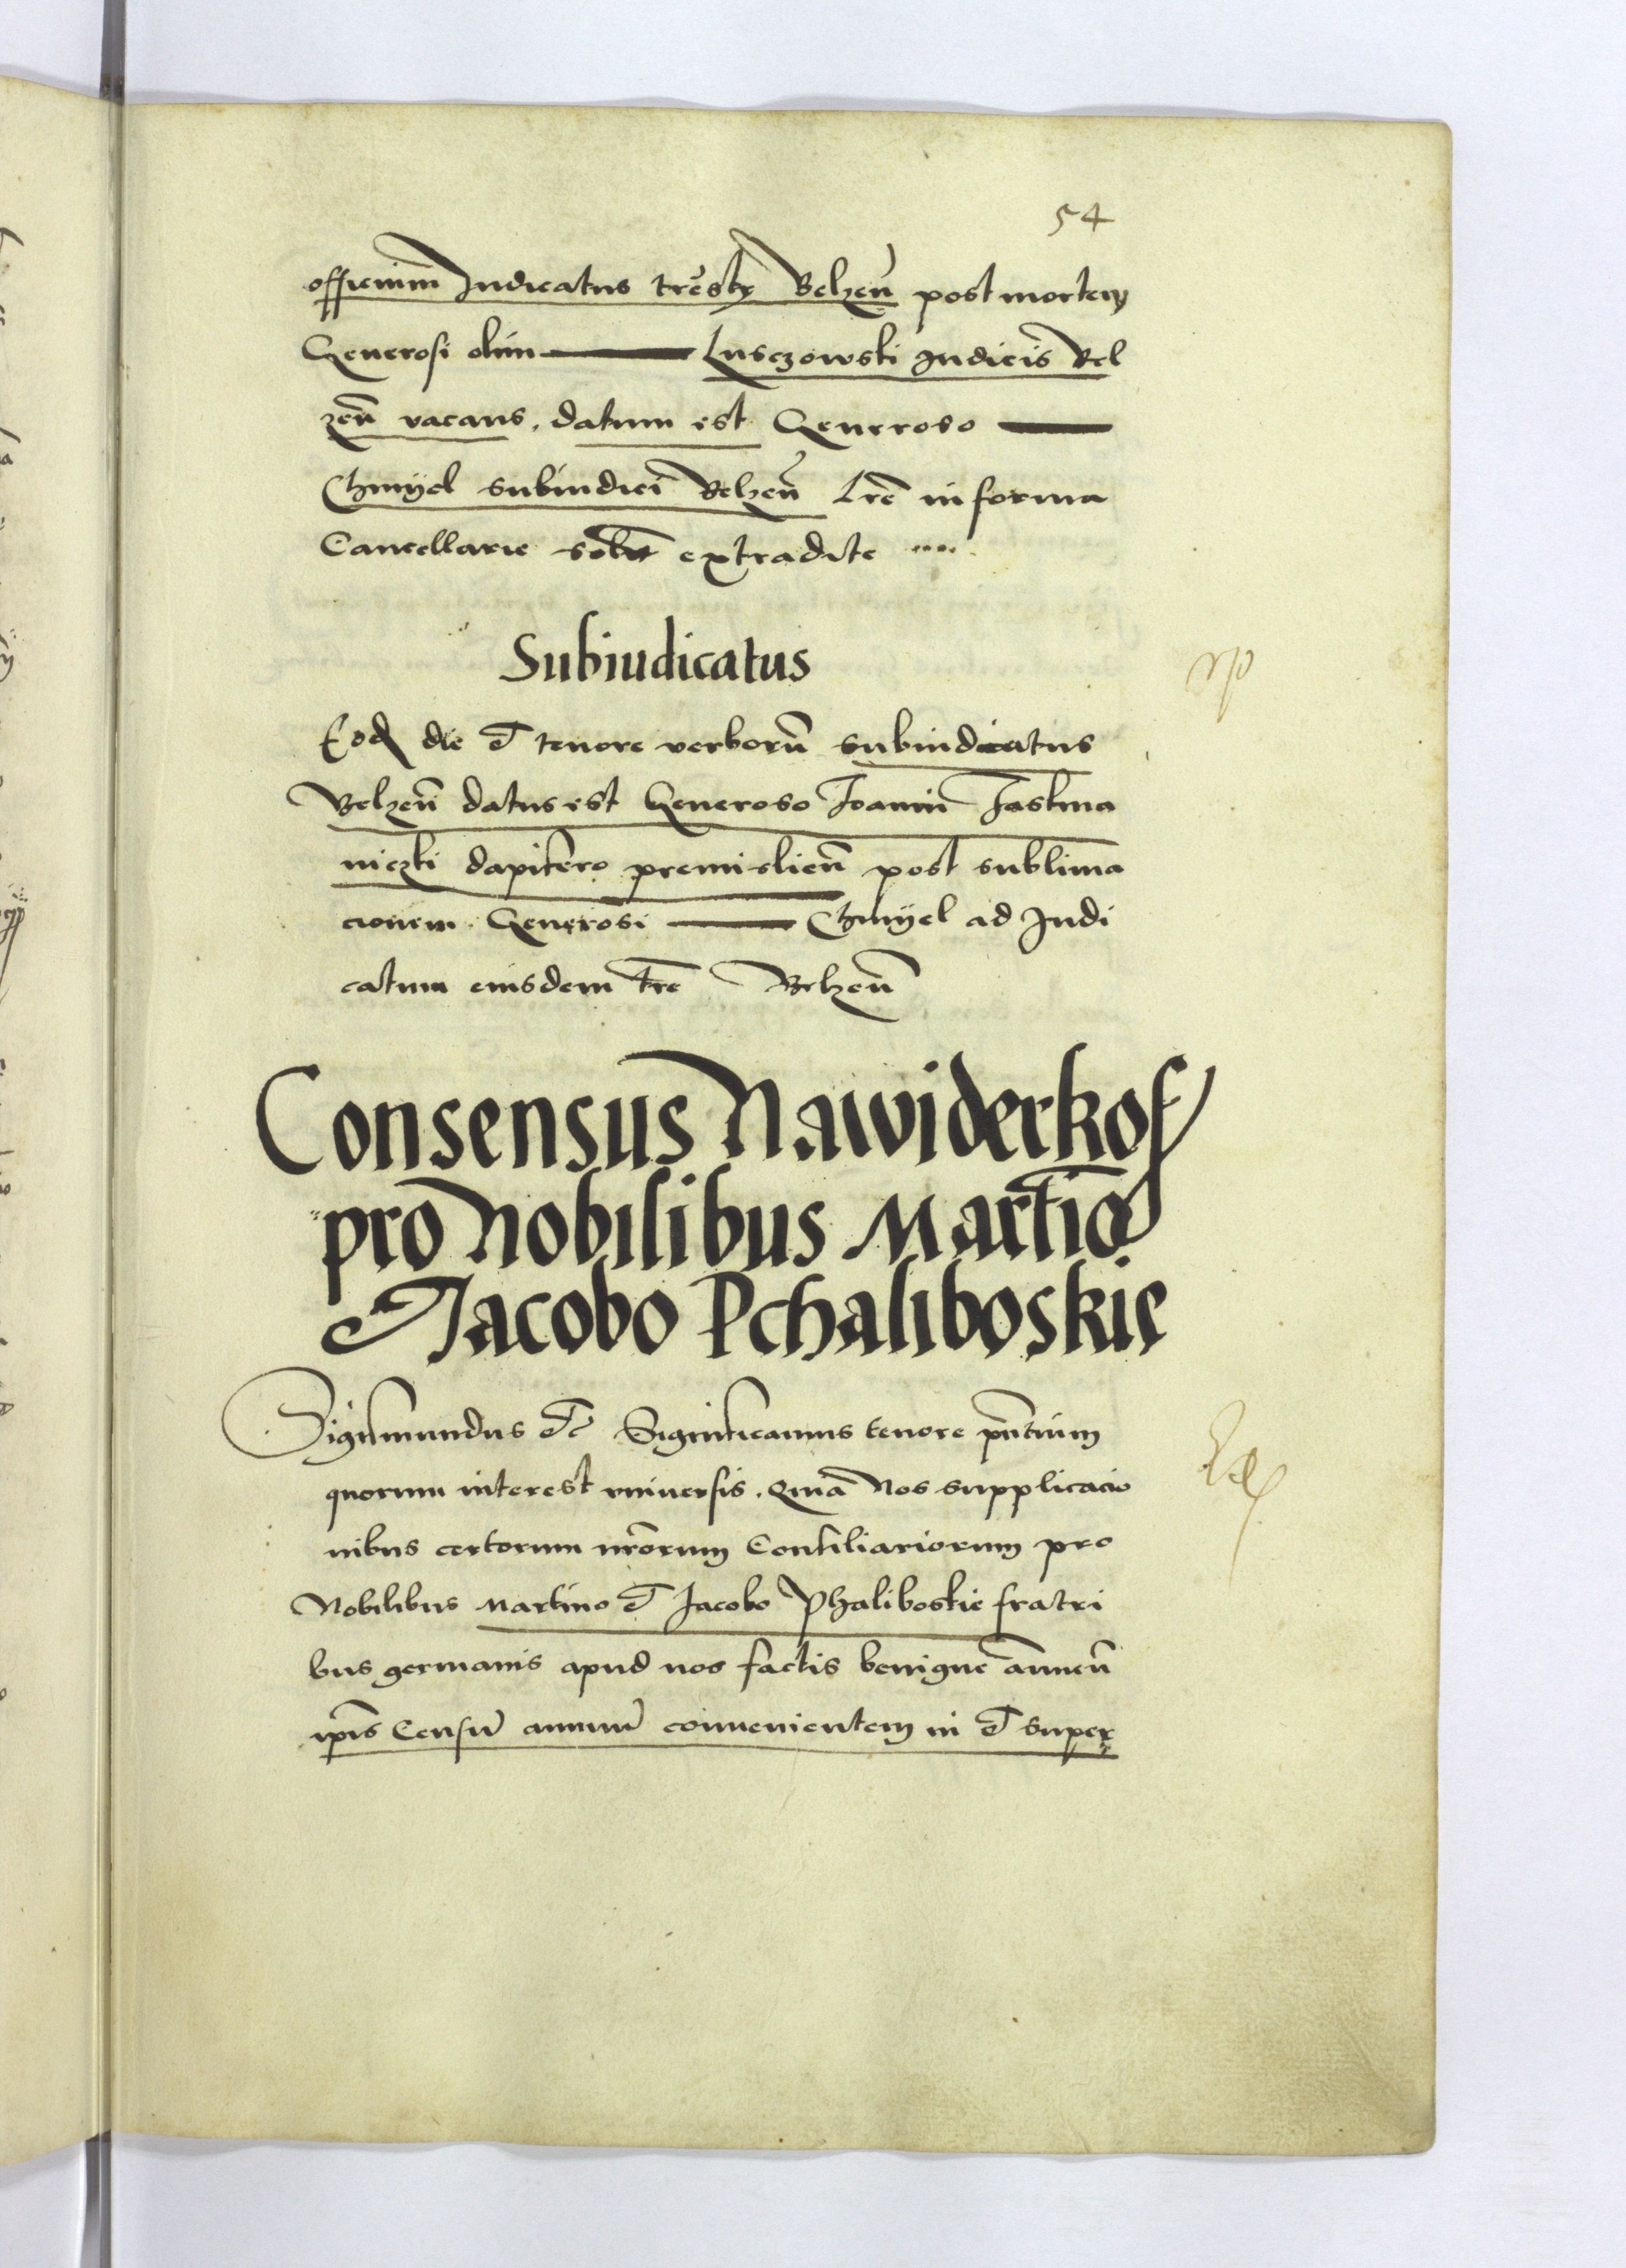 54
officium Judicatus trẽstr̃ Belzeñ post mortem
Generosi olim ——— Lusczowski Judicis Bel
zeñ vacans, datum est Generoso ———
Chmÿel subiudici Belzeñ Lrẽ in forma
Cancellarie extradite
Subiudicatus
Eod die et tenore verborũ subiudicatus
Belzeñ datus est Generoso Joanni Jastma
niczki dapifero premislieñ post sublima
cionem Generosi ——— Chmÿel ad Judi
catum eiusdem trẽ Belzeñ
Consensus Nawiderkof
pro Nobilibus Martĩo
et Jacobo Pchaliboskie
Sigismundus etc Significamus tenore pñtium
quorum interest vniuersis. Quia Nos supplicacio
nibus certorum nrõrum Consiliariorum pro
Nobilibus Martino et Jacobo Phaliboskie fratri
bus germanis apud nos factis benigne annueñ
ipĩs Censũ annuũ conuenientem in et super